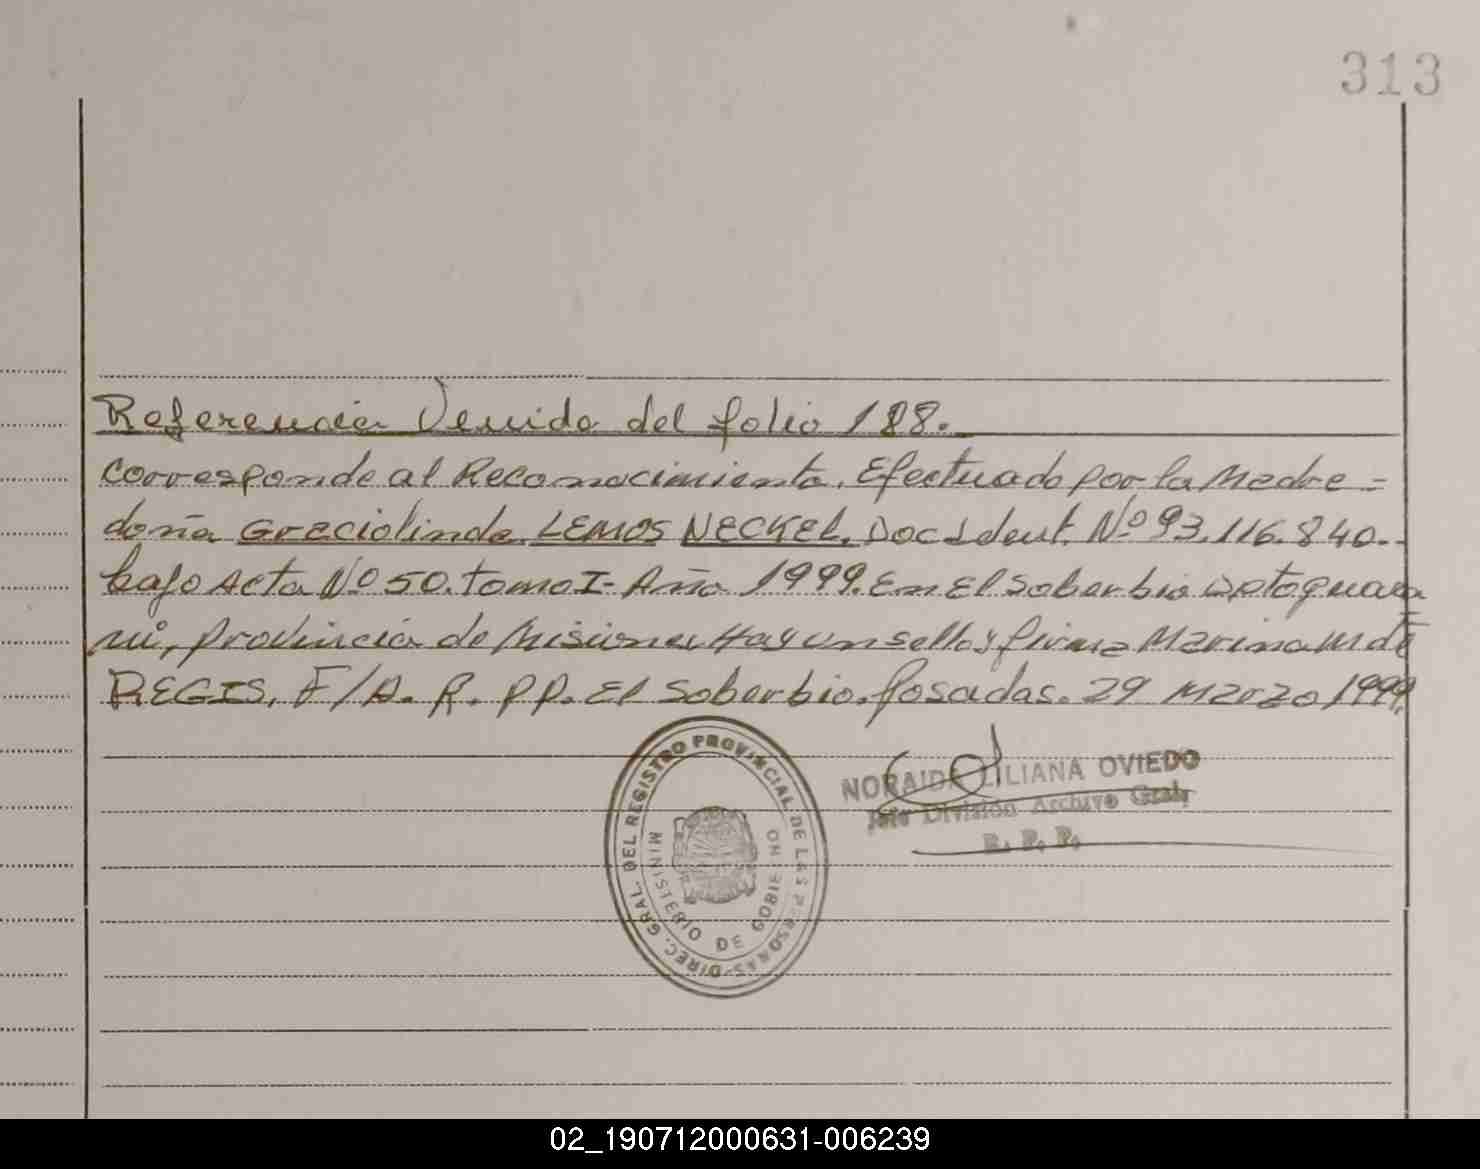 313
Referencia Venida del folio 188.
Corresponde al Reconocimiento, Efectuado por la Madre =
doña Graciolinda LEMOS NECKEL, Doc Ident. Nº 93.116.840.-
bajo Acta Nº 50. tomo I- Año 1999. En El Soberbio Dptoguara
ni, provincia de Misiones Hay un sello y firma Marina M de
REGIS, F/A. R. PP. El Soberbio. Posadas. 29 Marzo 1999.
NORAIDA LILIANA OVIEDO
Jefe División Archivo Gral,
R. P. P.
DIREC. GRAL. DEL REGISTRO PROVINCIAL DE LAS PERSONAS-
MINISTERIO DE GOBIERNO
02_190712000631-006239